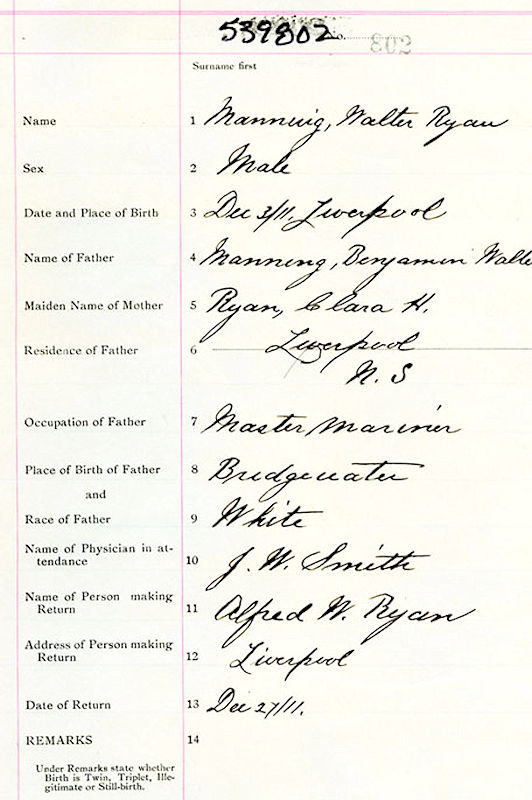 539802
No. 802
Surname first
Name 1 Manning, Walter Ryan
Sex 2 Male
Date and Place of Birth 3 Dec 3/11, Liverpool
Name of Father 4 Manning, Benjamin Walte
Maiden Name of Mother 5 Ryan, Clara H.
Residence of Father 6 Liverpool
N. S
Occupation of Father 7 Master Mariner
Place of Birth of Father 8 Bridgewater
and
Race of Father 9 White
Name of Physician in at-
tendance 10 J. W. Smith
Name of Person making
Return 11 Alfred W. Ryan
Address of Person making
Return 12 Liverpool
Date of Return 13 Dec 27/11.
REMARKS 14
Under Remarks state whether
Birth is Twin, Triplet, Ille-
gitimate or Still-birth.